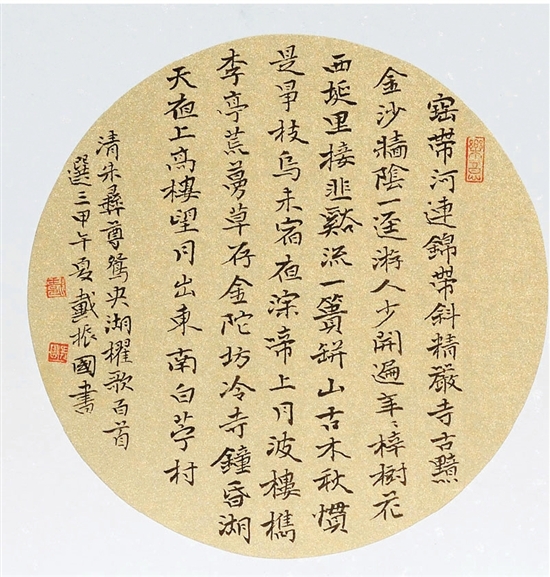 窰帶河連錦帶斜精嚴寺古黯
金沙牆陰一逕游人少開遍年〻梓樹花
西埏里接韭谿流一簣缾山古木秋慣
是爭枝烏未宿夜深啼上月波樓檇
李亭荒蔓草存金陀坊冷寺鐘昏湖
天夜上高樓望月出東南白苧村
清朱彝尊鴛央湖櫂歌百首
選三甲午夏戴振國書